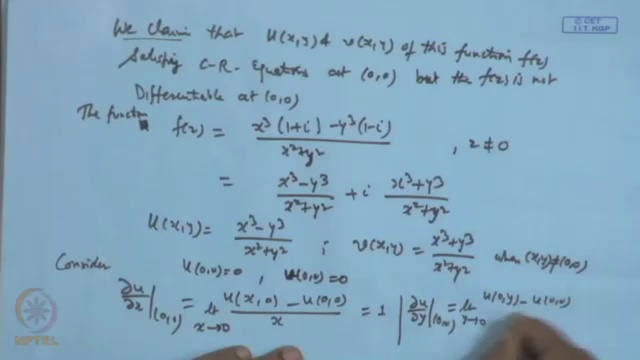 © CET
I.I.T. KGP
We claim that u(x,y) & v(x,y) of this function f(z)
Satisfying C-R. Equations at (0,0) but the f(z) is not
Differentiable at (0,0)
The function f(z) = x³(1+i) − y³(1−i) / x²+y² , z ≠ 0
= x³−y³ / x²+y² + i x³+y³ / x²+y²
u(x,y) = x³−y³ / x²+y² ; v(x,y) = x³+y³ / x²+y² when (x,y)≠(0,0)
Consider u(0,0)=0 , v(0,0)=0
∂u/∂x |(0,0) = lt x→0 u(x,0) − u(0,0) / x = 1 | ∂u/∂y |(0,0) = lt y→0 u(0,y) − u(0,0)
NPTEL